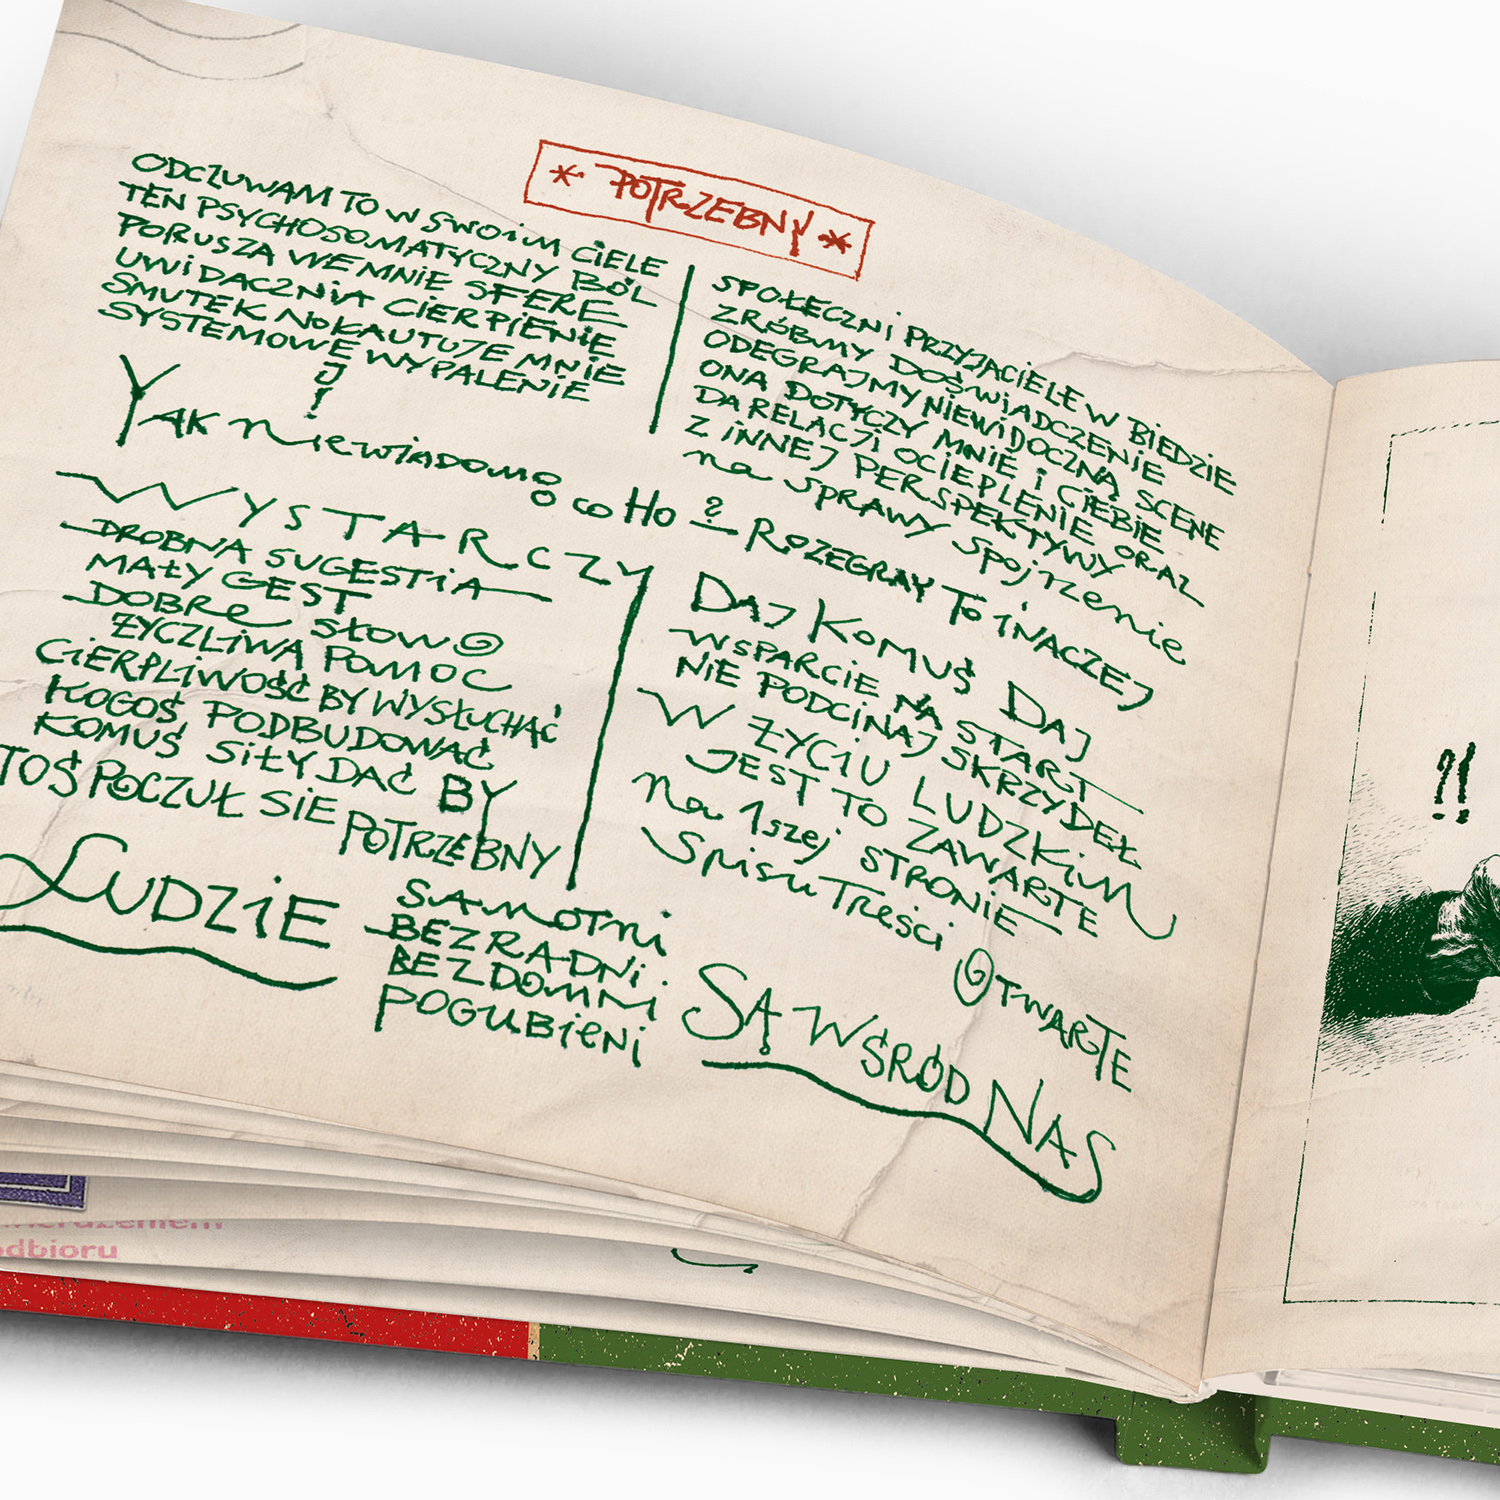 * POTRZEBNY *
ODCZUWAM TO W SWOIM CIELE
TEN PSYCHOSOMATYCZNY BÓL
PORUSZA WE MNIE SFERE
UWIDACZNIA CIERPIENIE
SMUTEK NOKAUTUJE MNIE
SYSTEMOWE WYPALENIE
YAK niewiadomo co Ho ? ROZEGRAY To iNACZEJ
SPOŁECZNI PRZYJACIELE W BIEDZIE
ZRÓBMY DOŚWIADCZENIE
ODEGRAJMY NIEWIDOCZNĄ SCENE
ONA DOTYCZY MNIE I CIEBIE
DA RELACJI OCIEPLENIE ORAZ
Z INNEJ PERSPEKTYWY
na sprawy spojrzenie
WYSTARCZY
DROBNA SUGESTIA
MAŁY GEST
DOBRE słowo
ŻYCZLIWA POMOC
CIERPLIWOŚĆ BY WYSŁUCHAĆ
KOGOŚ PODBUDOWAĆ
KOMUŚ SIŁY DAĆ BY
TOŚ POCZUŁ SIE POTRZEBNY
DAJ KOMUŚ DAJ
WSPARCIE NA START
NIE PODCINAJ SKRZYDEŁ
W ŻYCIU LUDZKIM
JEST TO ZAWARTE
na 1szej STRONIE
Spisu Treści OTWARTE
LUDZIE
SAMOTNI
BEZRADNI
BEZDOMNI
POGUBIENI
SĄ WŚRÓD NAS
?!
odbioru